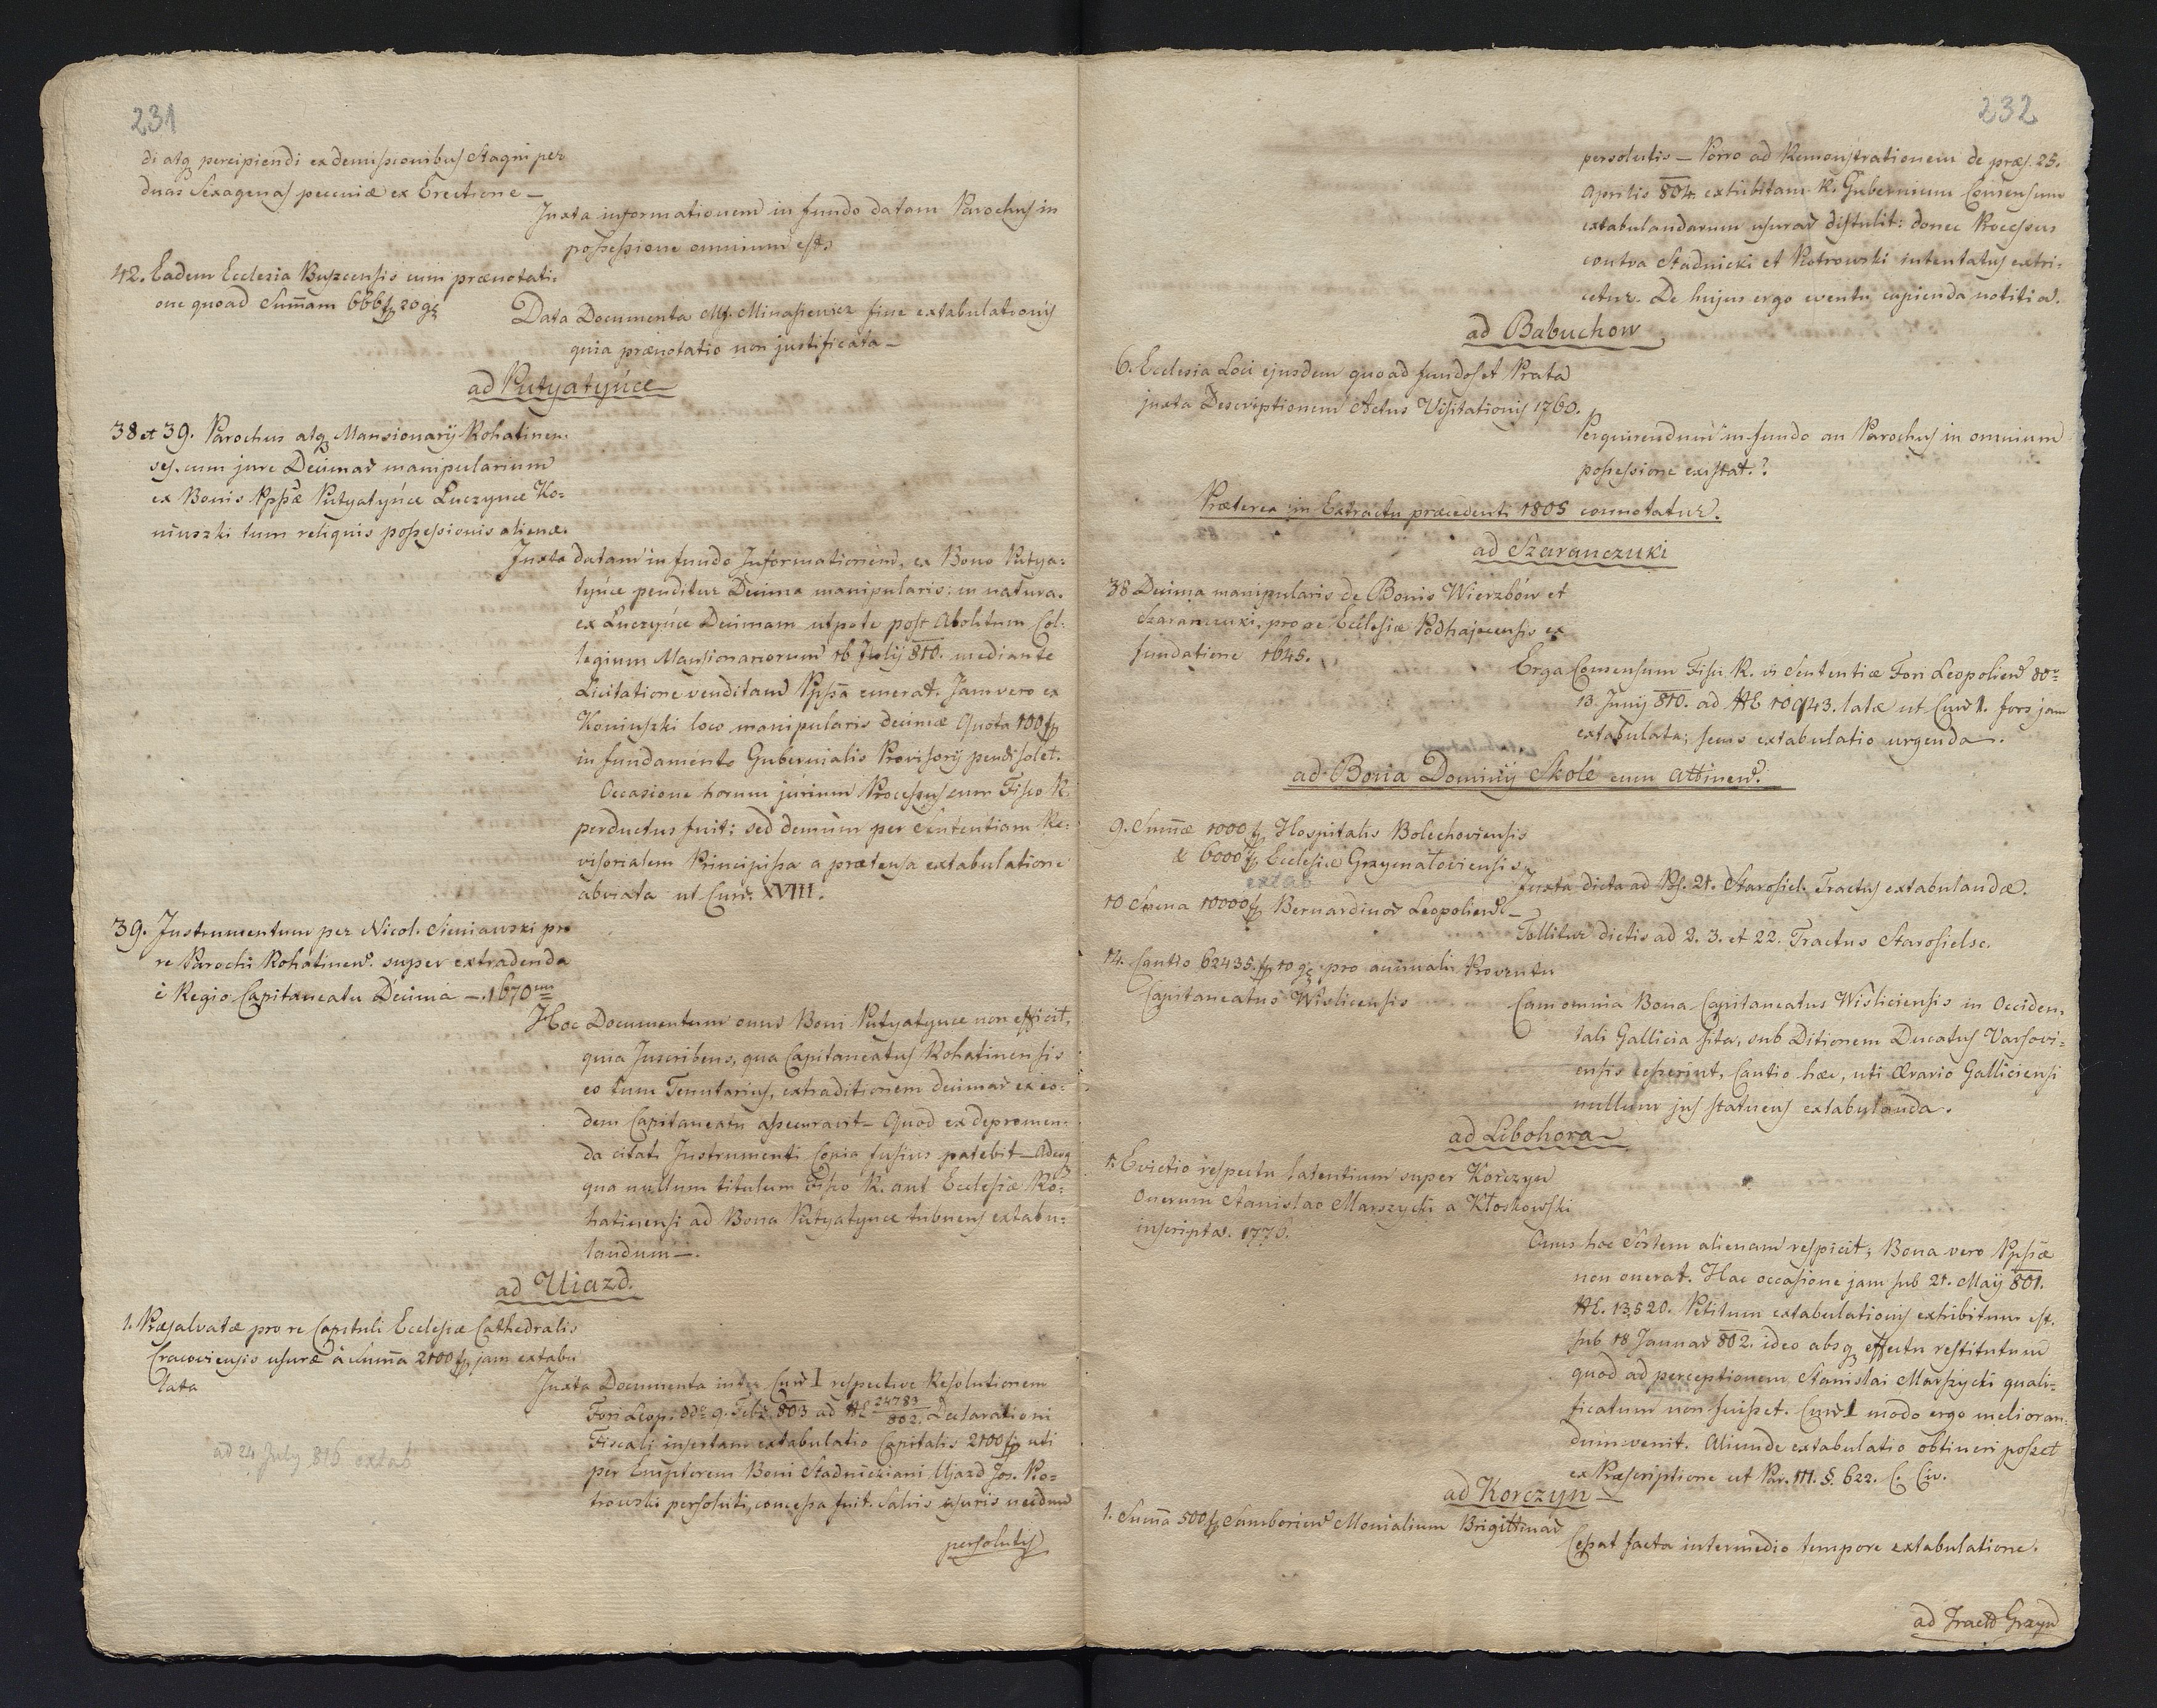 231
di atq percipiendi ex demissionibus Stagni per
duas Sexagenas pecuniæ ex Erectione —
Juxta informationem in fundo datam Parochus in
possessione omnium est.
42. Eadem Ecclesia Buszcensis cum prænotati-
one quoad Summam 666 fp 20 gr
Data Documenta Mf. Minasiewicz fine extabulationis
quia prænotatio non justificata —
ad Putyatyńce
38 et 39. Parochus atq Mansionarij Rohatinen-
ses. cum jure Decimar manipularium
ex Bonis Ppssæ Putyatyńce Luczynce Ko-
niuszki tum reliquis possessionis alienæ.
Juxta datam in fundo Informationem, ex Bono Putya-
tyńce penditur Decima manipularis in natura.
ex Luczyńce Decimam utpote post Abolitum Col-
legium Mansionariorum 16 Julij 810. mediante
Licitatione venditam Ppssa emerat. Jam vero ex
Koniuszki loco manipularis decimæ Quota 100 fp
in fundamento Gubernialis Provisorij pendi solet.
Occasione horum jurium Processus cum Fisco R.
perductus fuit; sed demum per Sententiam Re-
visorialem Principissa a prætensa extabulatione
abvixta ut Curr. XVIII.
39. Instrumentum per Nicol. Sieniawski pro
re Parochi Rohatinen. super extradenda
è Regio Capitaneatu Decima —. 1670
Hoc Documentum onus Boni Putyatynce non efficit,
quia Inscribens, qua Capitaneatus Rohatinensis
eo tum Tenutarius, extraditionem decimar ex eo-
dem Capitaneatu assecuravit — Quod ex depromen-
da citati Instrumenti Copia fusius patebit — Adeoq
qua nullum titulum Fisco R. aut Ecclesiæ Ro-
hatinensi ad Bona Putyatynce tribuens extabu-
landum —.
ad Uiazd.
1. Præsalvatæ pro re Capituli Ecclesiæ Cathedralis
Cracoviensis usuræ à Summa 2100 fp jam extabu
lata
Juxta Documenta inter Curr I respective Resolutionem
Fori Leop. dd 9. Febr. 803 ad № 24783/802. Declarationi
Fiscali insertam extabulatio Capitalis 2100 fp uti
per Emptorem Boni Stadnickiani Ujazd Jos. Pio-
trowski persoluti, concessa fuit. Salvis usuris necdum
ad 24 July 816 extab
persolutis
232
persolutis — Porro ad Remonstrationem de præs. 25.
Aprilis 804 exhibitam R. Gubernium Consensum
extabulandarum usurar distulit: donec Processus
contra Stadnicki et Piotrowski intentatus extri-
cetur. De hujus ergo eventu capienda notitia.
ad Babuchow
6. Ecclesia Loci ejusdem quoad fundos et Prata
juxta Descriptionem Actus Visitationis 1760.
Perquirendum in fundo an Parochus in omnium
possessione existat.?
Præterea in Extractu præcedenti 1805 connotatur.
ad Szaranczuki
38 Decima manipularis de Bonis Wierzbów et
Szaranczuki, pro re Ecclesiæ Podhajecensis ex
fundatione 1645.
Erga Consensum Fisci R. vi Sententiæ Fori Leopolien dd
13. Junij 810. ad № 10943. latæ ut Curr 1. fors jam
extabulata; secus extabulatio urgenda.
extabulatum
ad Bona Dominij Skole cum attinen.
9. Summæ 1000 fp Hospitalis Bolechoviensis
& 6000 fp Ecclesiæ Grzymałoviensis
Juxta dicta ad Ps. 21. Starosiel. Tractus extabulandæ.
extab
10 Summa 10000 fp Bernardinor Leopolien —
Tollitur dictis ad 2. 3. et 22. Tractus Starosielsc.
14. Cautio 62435. fp 10 gr. pro annuali Proventu
Capitaneatus Wisliciensis
Cum omnia Bona Capitaneatus Wisliciensis in Occiden-
tali Gallicia sita, sub Ditionem Ducatus Varsovi-
ensis cesserint, Cautio hæc, uti Ærario Galliciensi
nullum jus statuens extabulanda.
ad Libohora
1. Evictio respectu latentium super Korczyn
Onerum Stanislao Marszycki a Kłoskowski
inscripta. 1776.
Onus hoc Sortem alienam respicit; Bona vero Ppssæ
non onerat. Hac occasione jam sub 21. Maij 801.
№. 13,520. Petitum extabulationis exhibitum est.
sub 18 Januar 802. ideo absq effectu restitutum
quod ad perceptionem Stanislai Marszycki quali-
ficatum non fuisset. Curr I modo ergo melioran-
dum venit. Aliunde extabulatio obtineri posset
ex Præscriptione ut Par. III. §. 622. C. Civ.
ad Korczyn —
1. Summa 500 fp Samborien Monialium Brigittinar
Cessat facta intermedio tempore extabulatione.
ad Tract Grzym